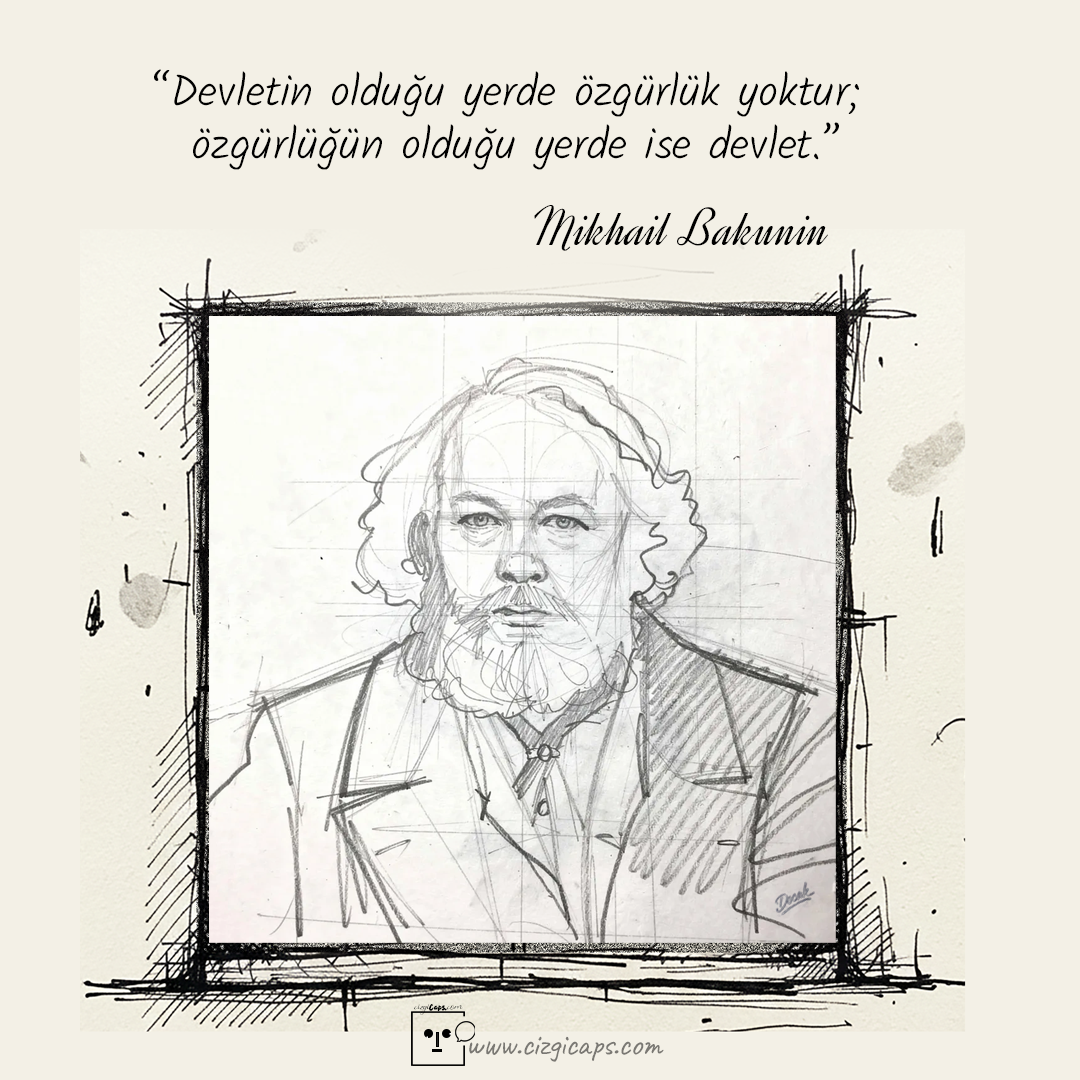 “Devletin olduğu yerde özgürlük yoktur;
özgürlüğün olduğu yerde ise devlet.”
Mikhail Bakunin
cizgiCaps.com
www.cizgicaps.com